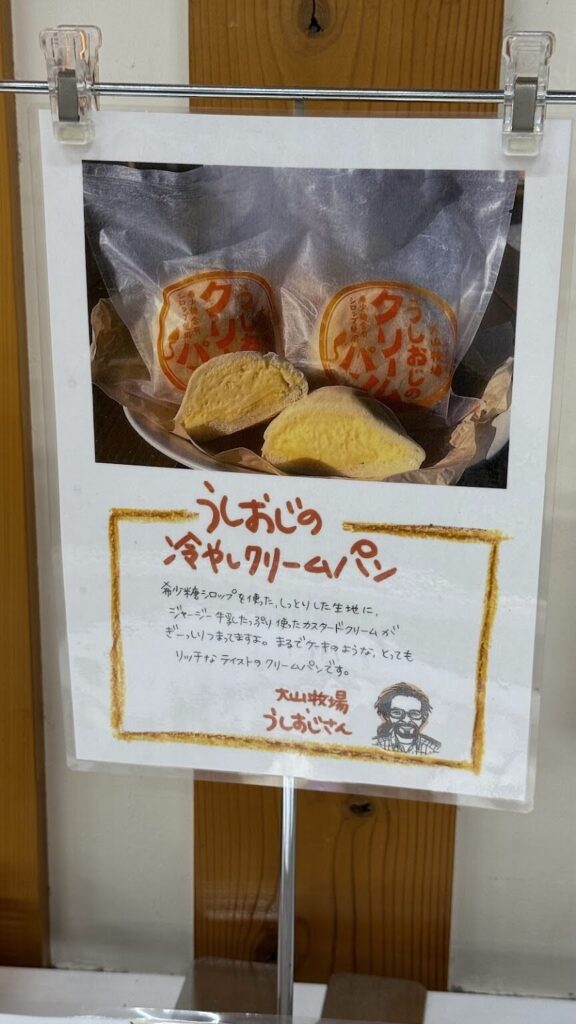 大山牧場
うしおじの
クリームパン
うしおじの
冷やしクリームパン
希少糖シロップを使った、しっとりした生地に、
ジャージー牛乳たっぷり使ったカスタードクリームが
ぎーっしりつまってますよ。まるでケーキのような、とっても
リッチなテイストのクリームパンです。
大山牧場
うしおじさん